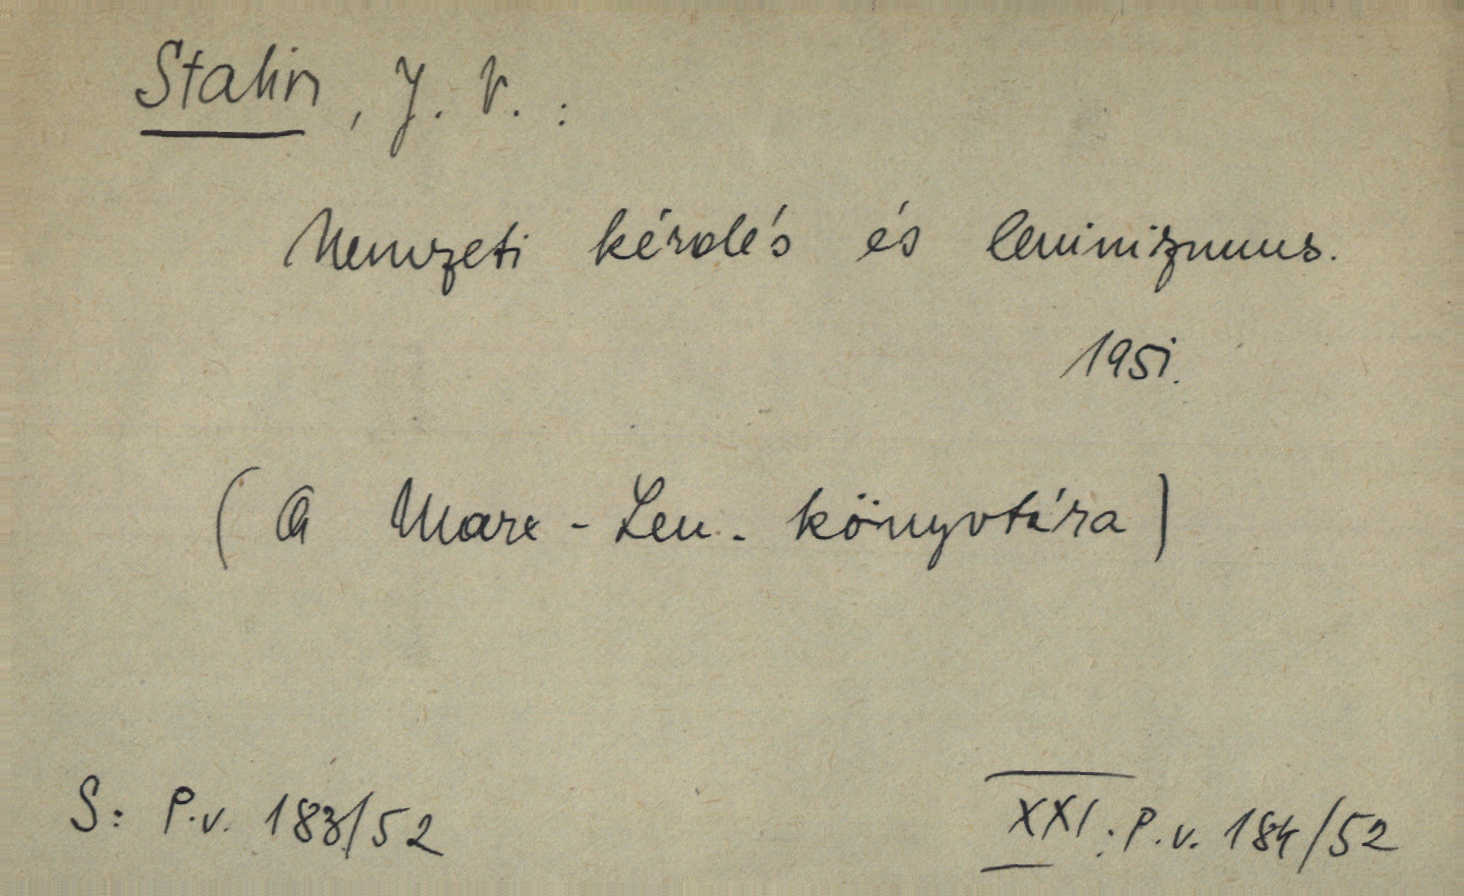 Stalin, J. V.:
Nemzeti kérdés és leninizmus.
1951.
(A Marx-Len. könyvtára)
S: P.v. 183/52
XXI: P.v. 184/52